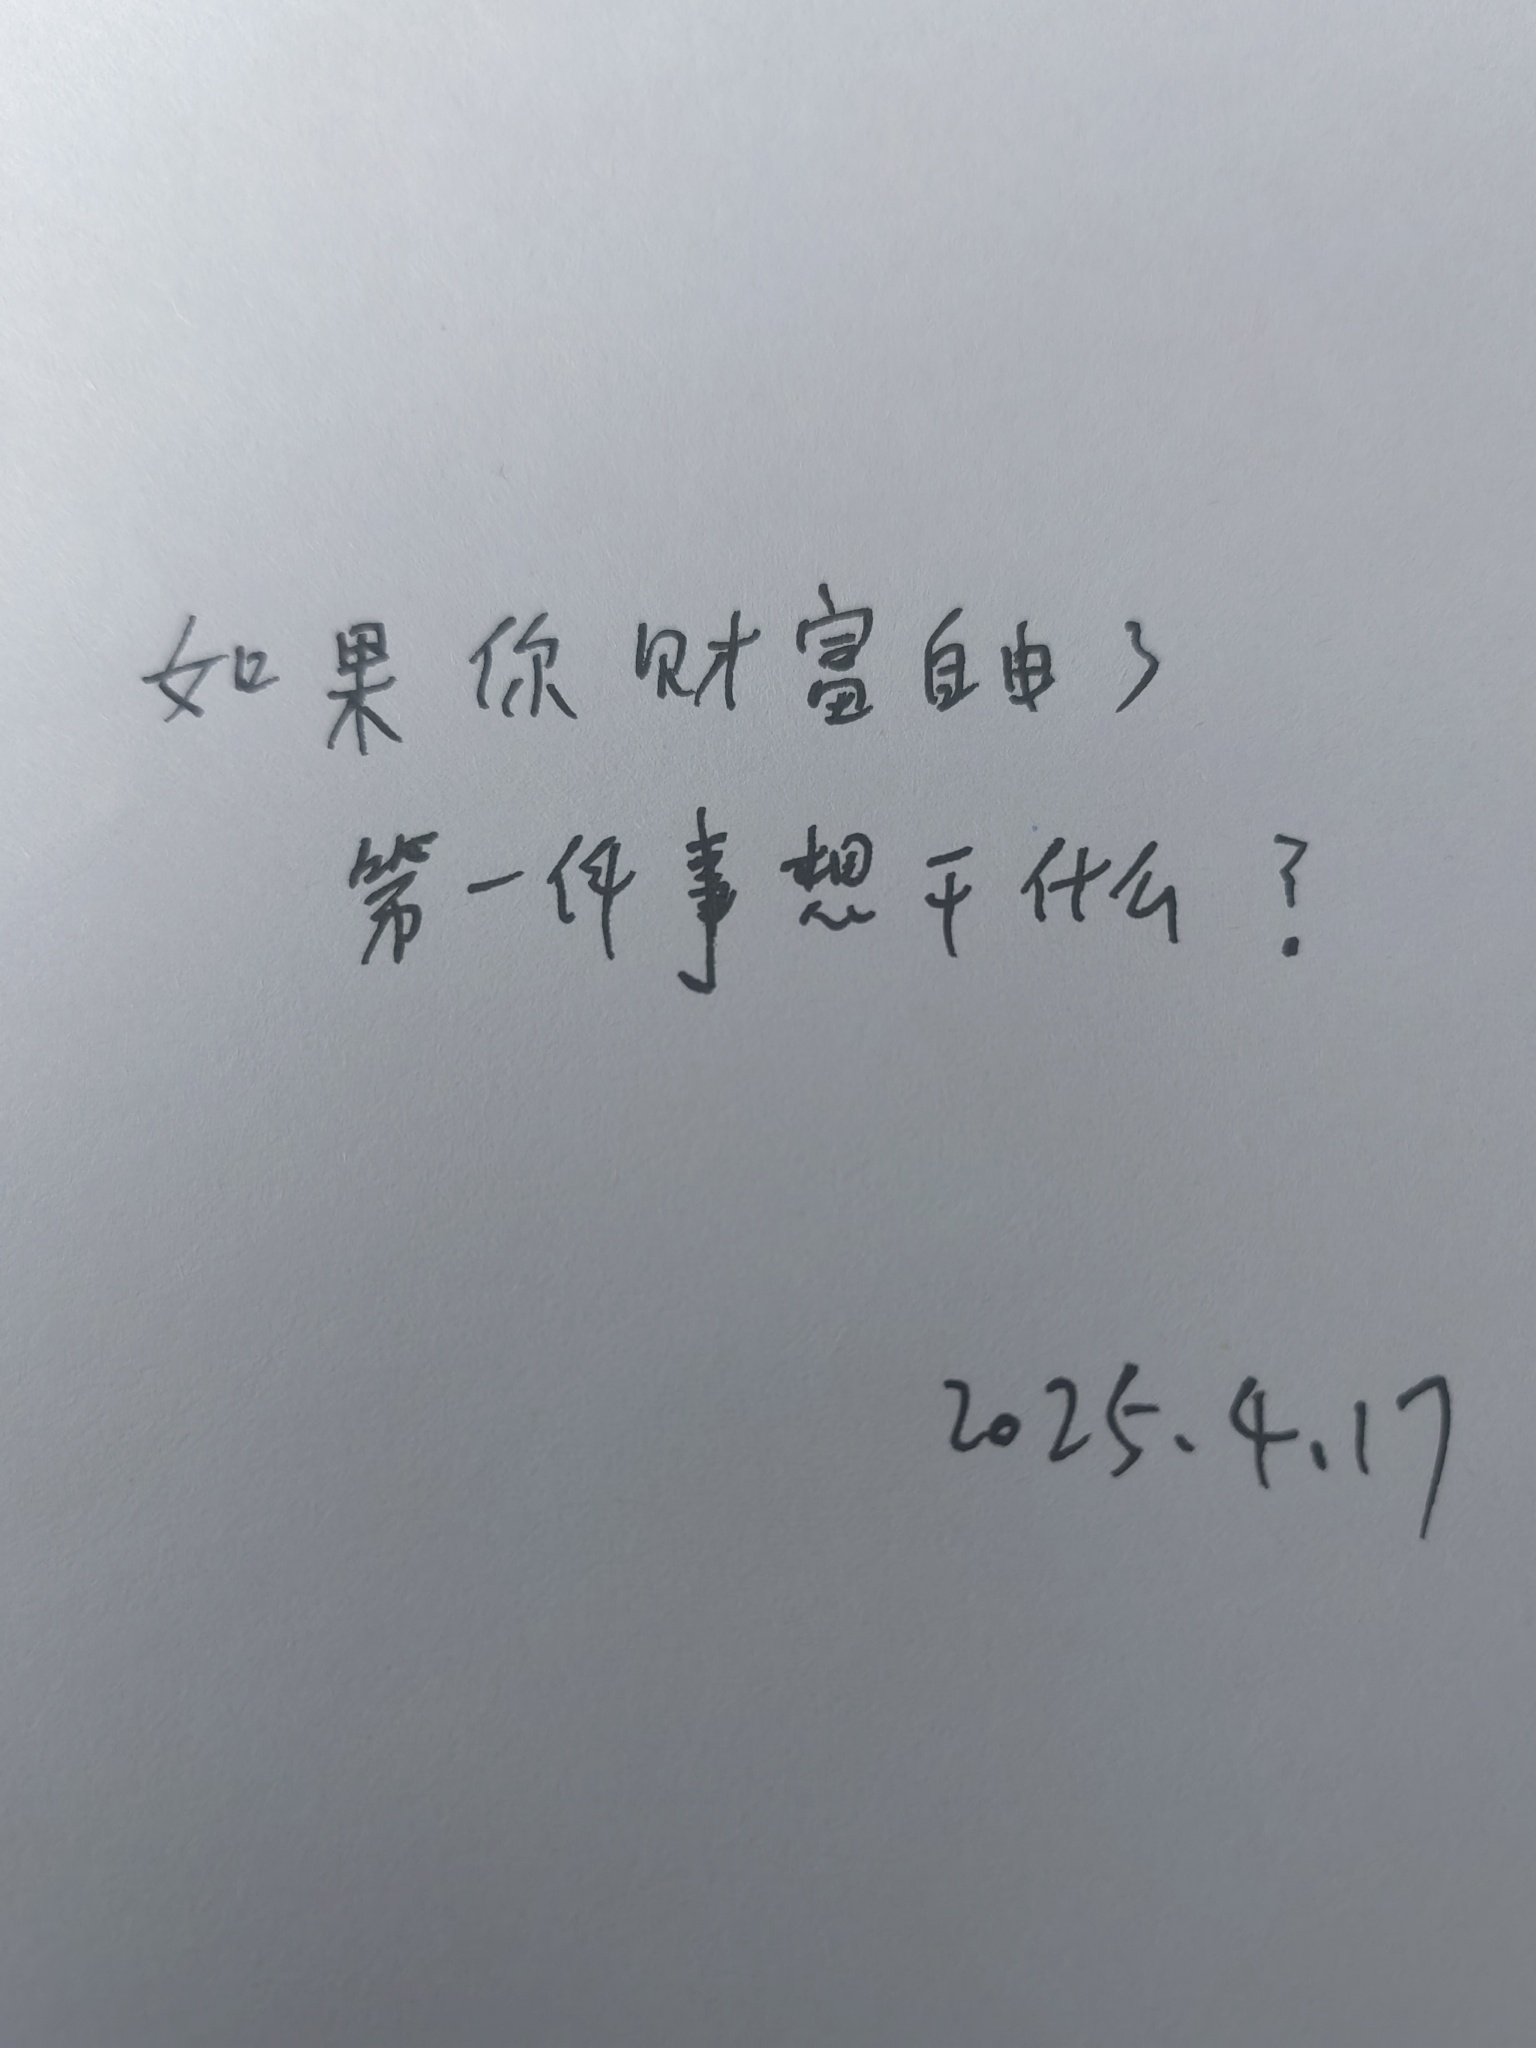 如果你财富自由了
第一件事想干什么？
2025.4.17